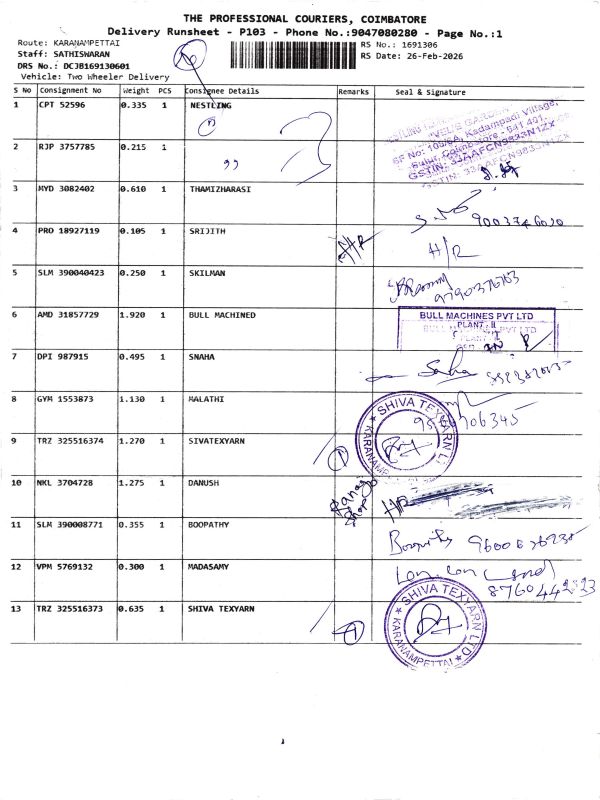 THE PROFESSIONAL COURIERS, COIMBATORE
Delivery Runsheet - P103 - Phone No.:9047080280 - Page No.:1
Route: KARANAMPETTAI
RS No.: 1691306
Staff: SATHISWARAN
RS Date: 26-Feb-2026
DRS No.: DCJB169130601
Vehicle: Two Wheeler Delivery
S No Consignment No Weight PCS Consignee Details Remarks Seal & Signature
1 CPT 52596 0.335 1 NESTLING
2 RJP 3757785 0.215 1
SF No: 100/6A, Kadampadi Village,
Sulur, Coimbatore - 641 401.
GSTIN: 33AAFCN9833N1ZX
3 MYD 3082402 0.610 1 THAMIZHARASI
9003746020
4 PRO 18927119 0.105 1 SRIJITH H/R
H/R
5 SLM 390040423 0.250 1 SKILMAN
6 AMD 31857729 1.920 1 BULL MACHINED
BULL MACHINES PVT LTD
PLANT - II
7 DPI 987915 0.495 1 SNAHA
Saha
8 GYM 1553873 1.130 1 MALATHI
SHIVA TEXYARN LTD
KARANAMPETTAI
9 TRZ 325516374 1.270 1 SIVATEXYARN
10 NKL 3704728 1.275 1 DANUSH
H/R
11 SLM 390008771 0.355 1 BOOPATHY
Boopathy 9600626235
12 VPM 5769132 0.300 1 MADASAMY
13 TRZ 325516373 0.635 1 SHIVA TEXYARN
SHIVA TEXYARN LTD
KARANAMPETTAI